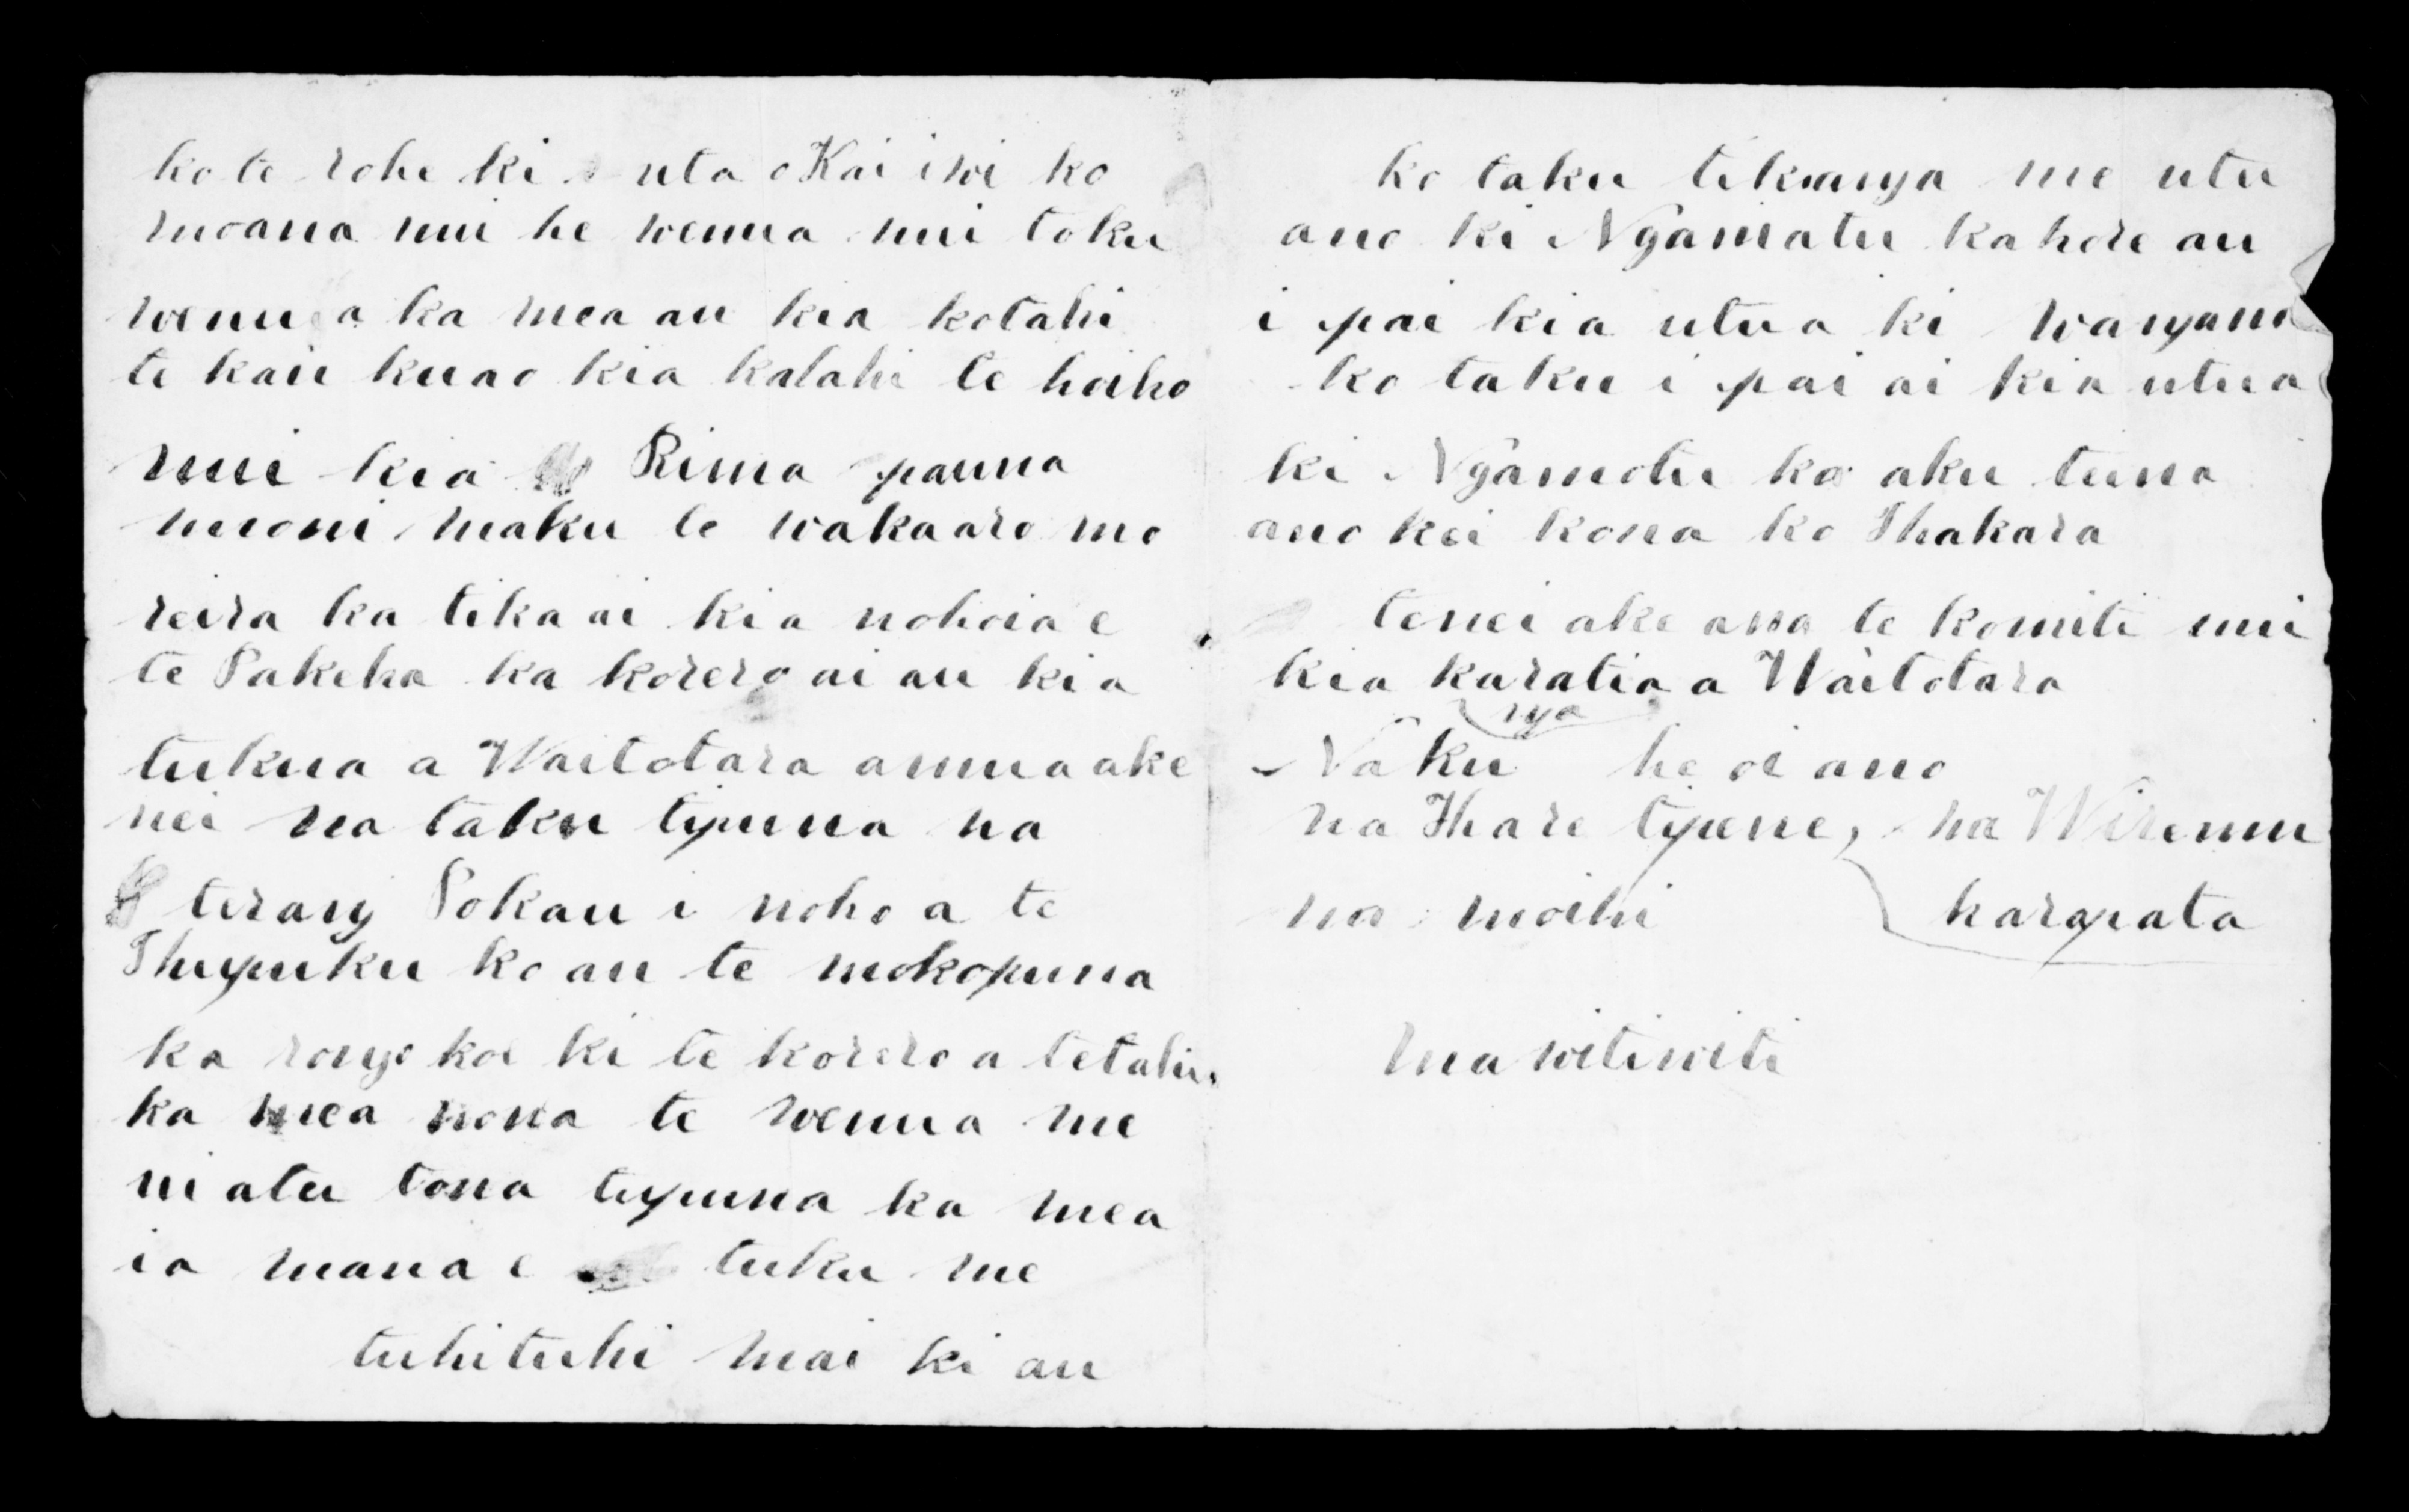 ko te rohe ki uta o Kai iwi ko
moana nui he wenua nui toku
wenua ka mea au kia kotahi
te kau kuao kia katahi te hoiho
nui kia Rima pauna
moni maku te wakaaro mo
reira ka tika ai kia nohoia e
te Pakeha ka korero ai au kia
tukua a Waitotara amua ake
nei na taku tipuna na
terangi Pokau i noho a te
Ihupuku ko au te mokopuna
ka rongo koe ki te korero a tetahi
ka mea nona te wenua me
ui atu tona tupuna ka mea
ia mana e tuku me
tuhituhi mai ki au
ko taku tikanga me utu
ano ki Ngamatu kahore au
i pai kia utua ki wanganui
ko taku i pai ai kia utua
ki Ngamotu ko aku tuna
ano kei kona ko Ihakara
tenei ake ana te komiti nui
kia karatia a Waitotara
nga
Na ku he oi ano
na Ihare tipene, na Wiremu
na moihi karapata
ma witiwiti